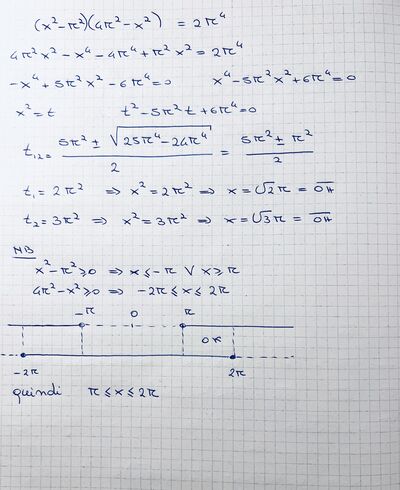 (x²-π²)(4π²-x²) = 2π⁴
4π²x²-x⁴-4π⁴+π²x²=2π⁴
-x⁴+5π²x²-6π⁴=0 x⁴-5π²x²+6π⁴=0
x²=t t²-5π²t+6π⁴=0
t₁,₂= (5π² ± √(25π⁴-24π⁴))/2 = (5π² ± π²)/2
t₁=2π² ⇒ x²=2π² ⇒ x=√2π = OH
t₂=3π² ⇒ x²=3π² ⇒ x=√3π = OH
NB
x²-π²≥0 ⇒ x≤-π ∨ x≥π
4π²-x²≥0 ⇒ -2π≤x≤2π
-π 0 π
OK
-2π 2π
quindi π≤x≤2π